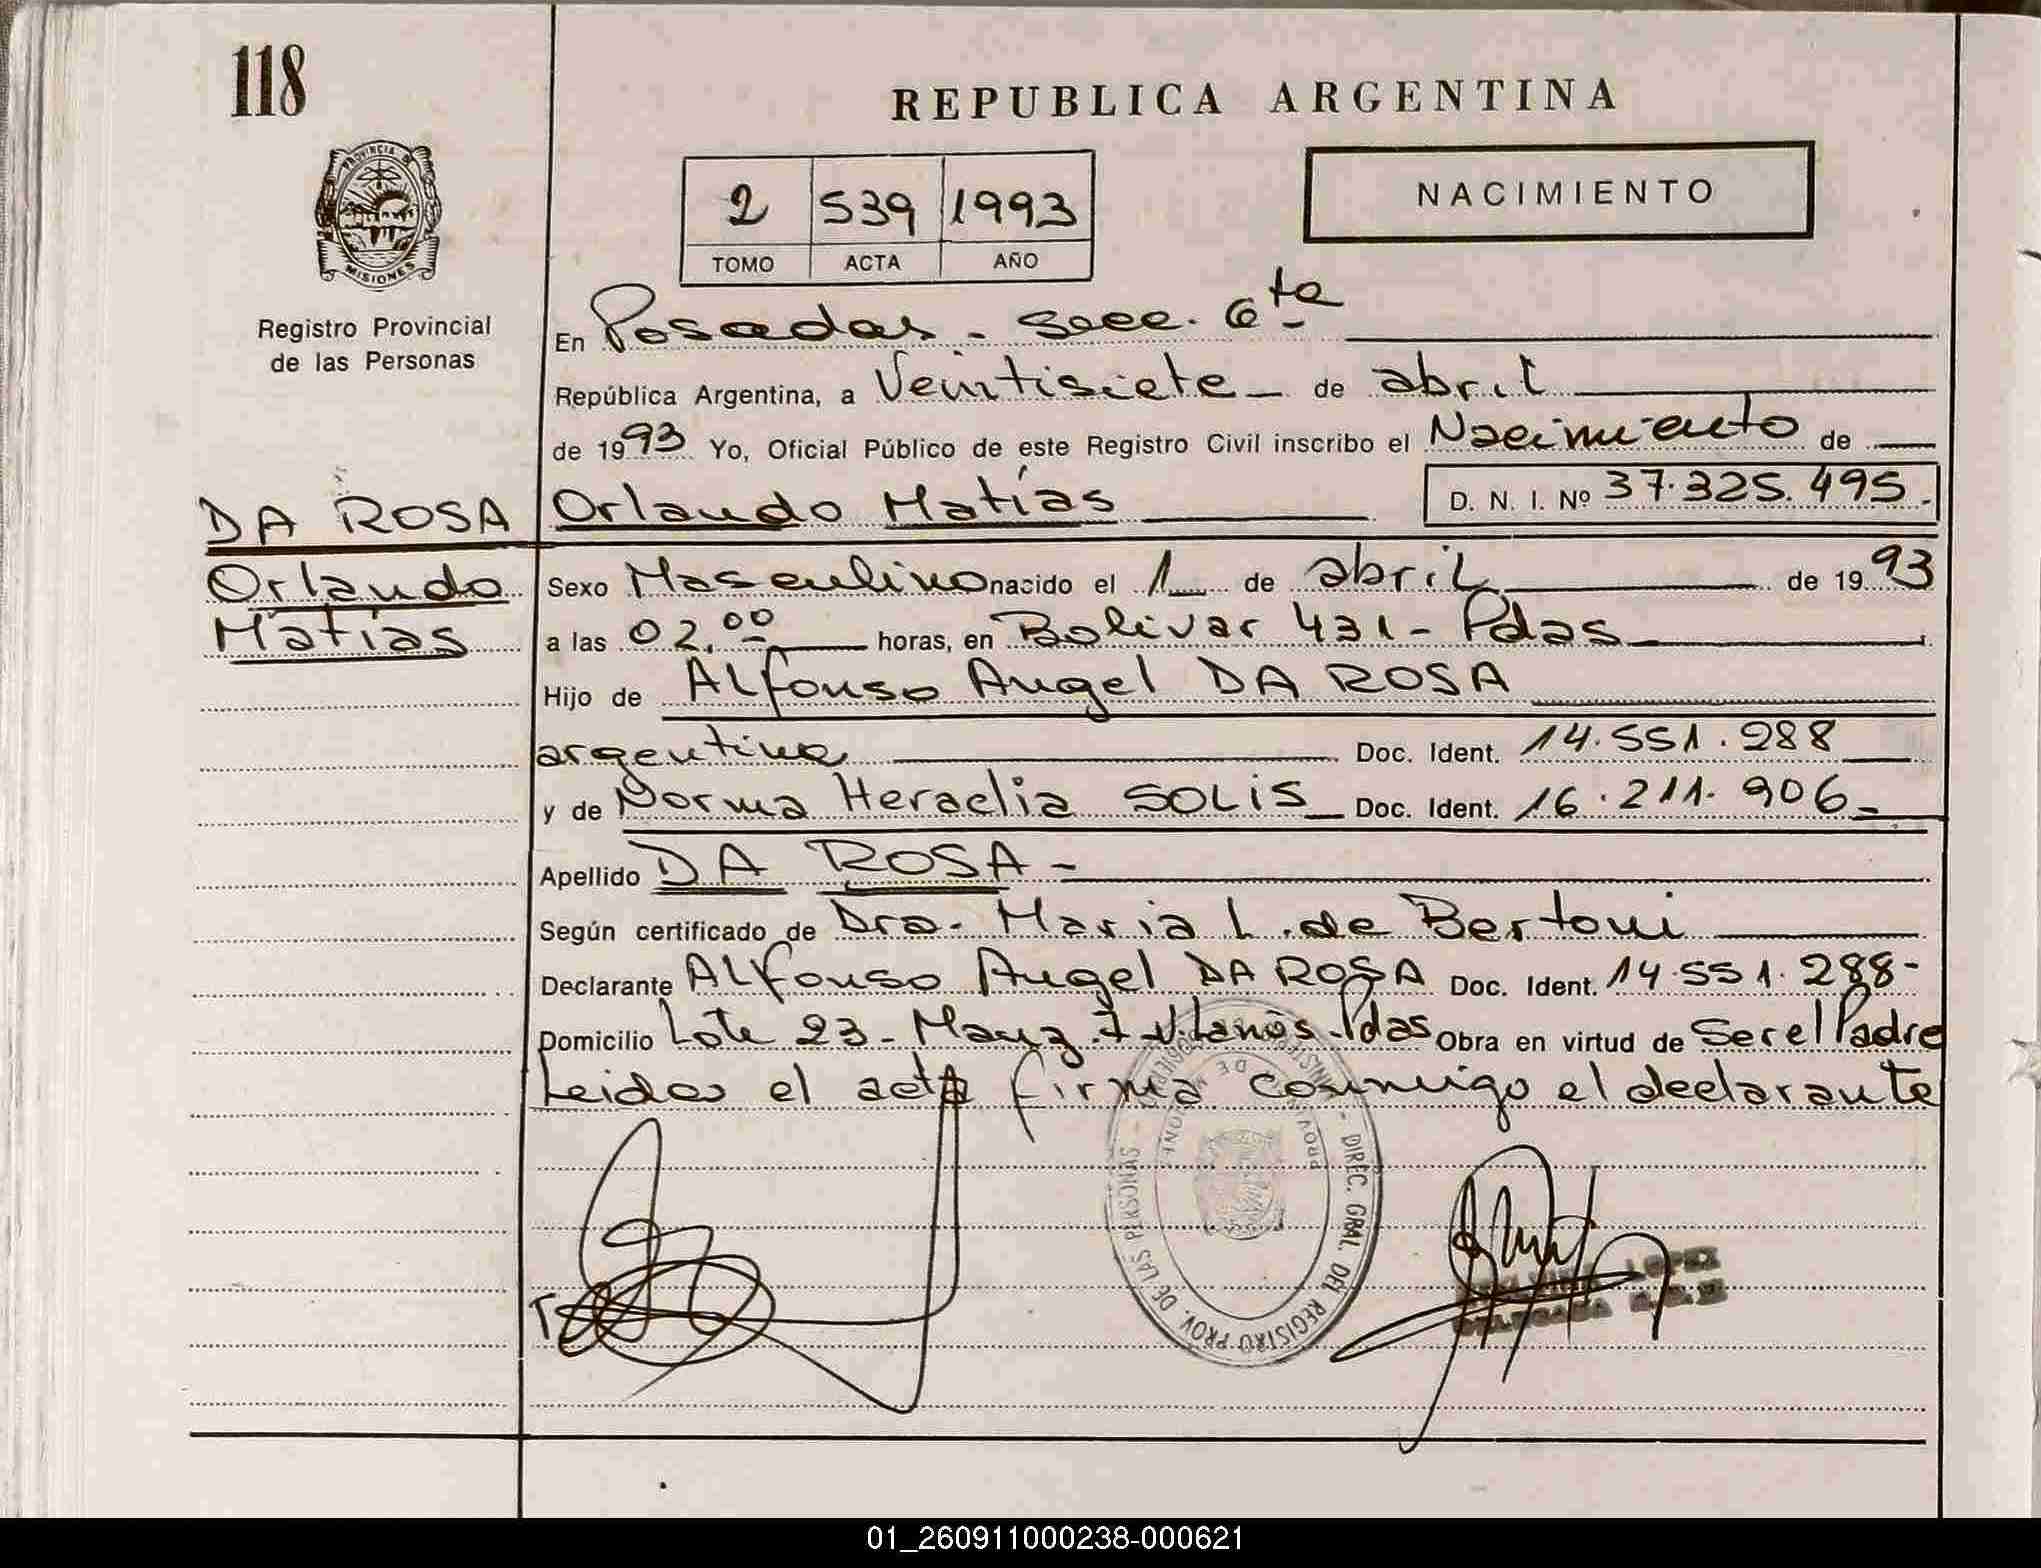 118
REPUBLICA ARGENTINA
PROVINCIA DE
MISIONES
2 539 1993
TOMO ACTA AÑO
NACIMIENTO
Registro Provincial
de las Personas
En Posadas - Secc. 6ta
República Argentina, a Veintisiete - de abril
de 1993 Yo, Oficial Público de este Registro Civil inscribo el Nacimiento de
DA ROSA Orlando Matías D. N. I. Nº 37.325.495.-
Orlando
Matías
Sexo Masculino nacido el 1 de abril de 1993
a las 02,00 horas, en Bolivar 431 - Pdas
Hijo de Alfonso Angel DA ROSA
argentina Doc. Ident. 14.551.288
y de Norma Heraclia SOLIS Doc. Ident. 16.211.906-
Apellido DA ROSA -
Según certificado de Dra. Maria L. de Bertoni
Declarante Alfonso Angel DA ROSA Doc. Ident. 14.551.288-
Domicilio Lote 23 - Manz. 7 V. Lanús - Pdas Obra en virtud de Ser el Padre
Leida el acta firma conmigo el declarante
DIREC. GRAL. DEL REGISTRO PROV. DE LAS PERSONAS
LOPEZ
DELEGADA
01_260911000238-000621